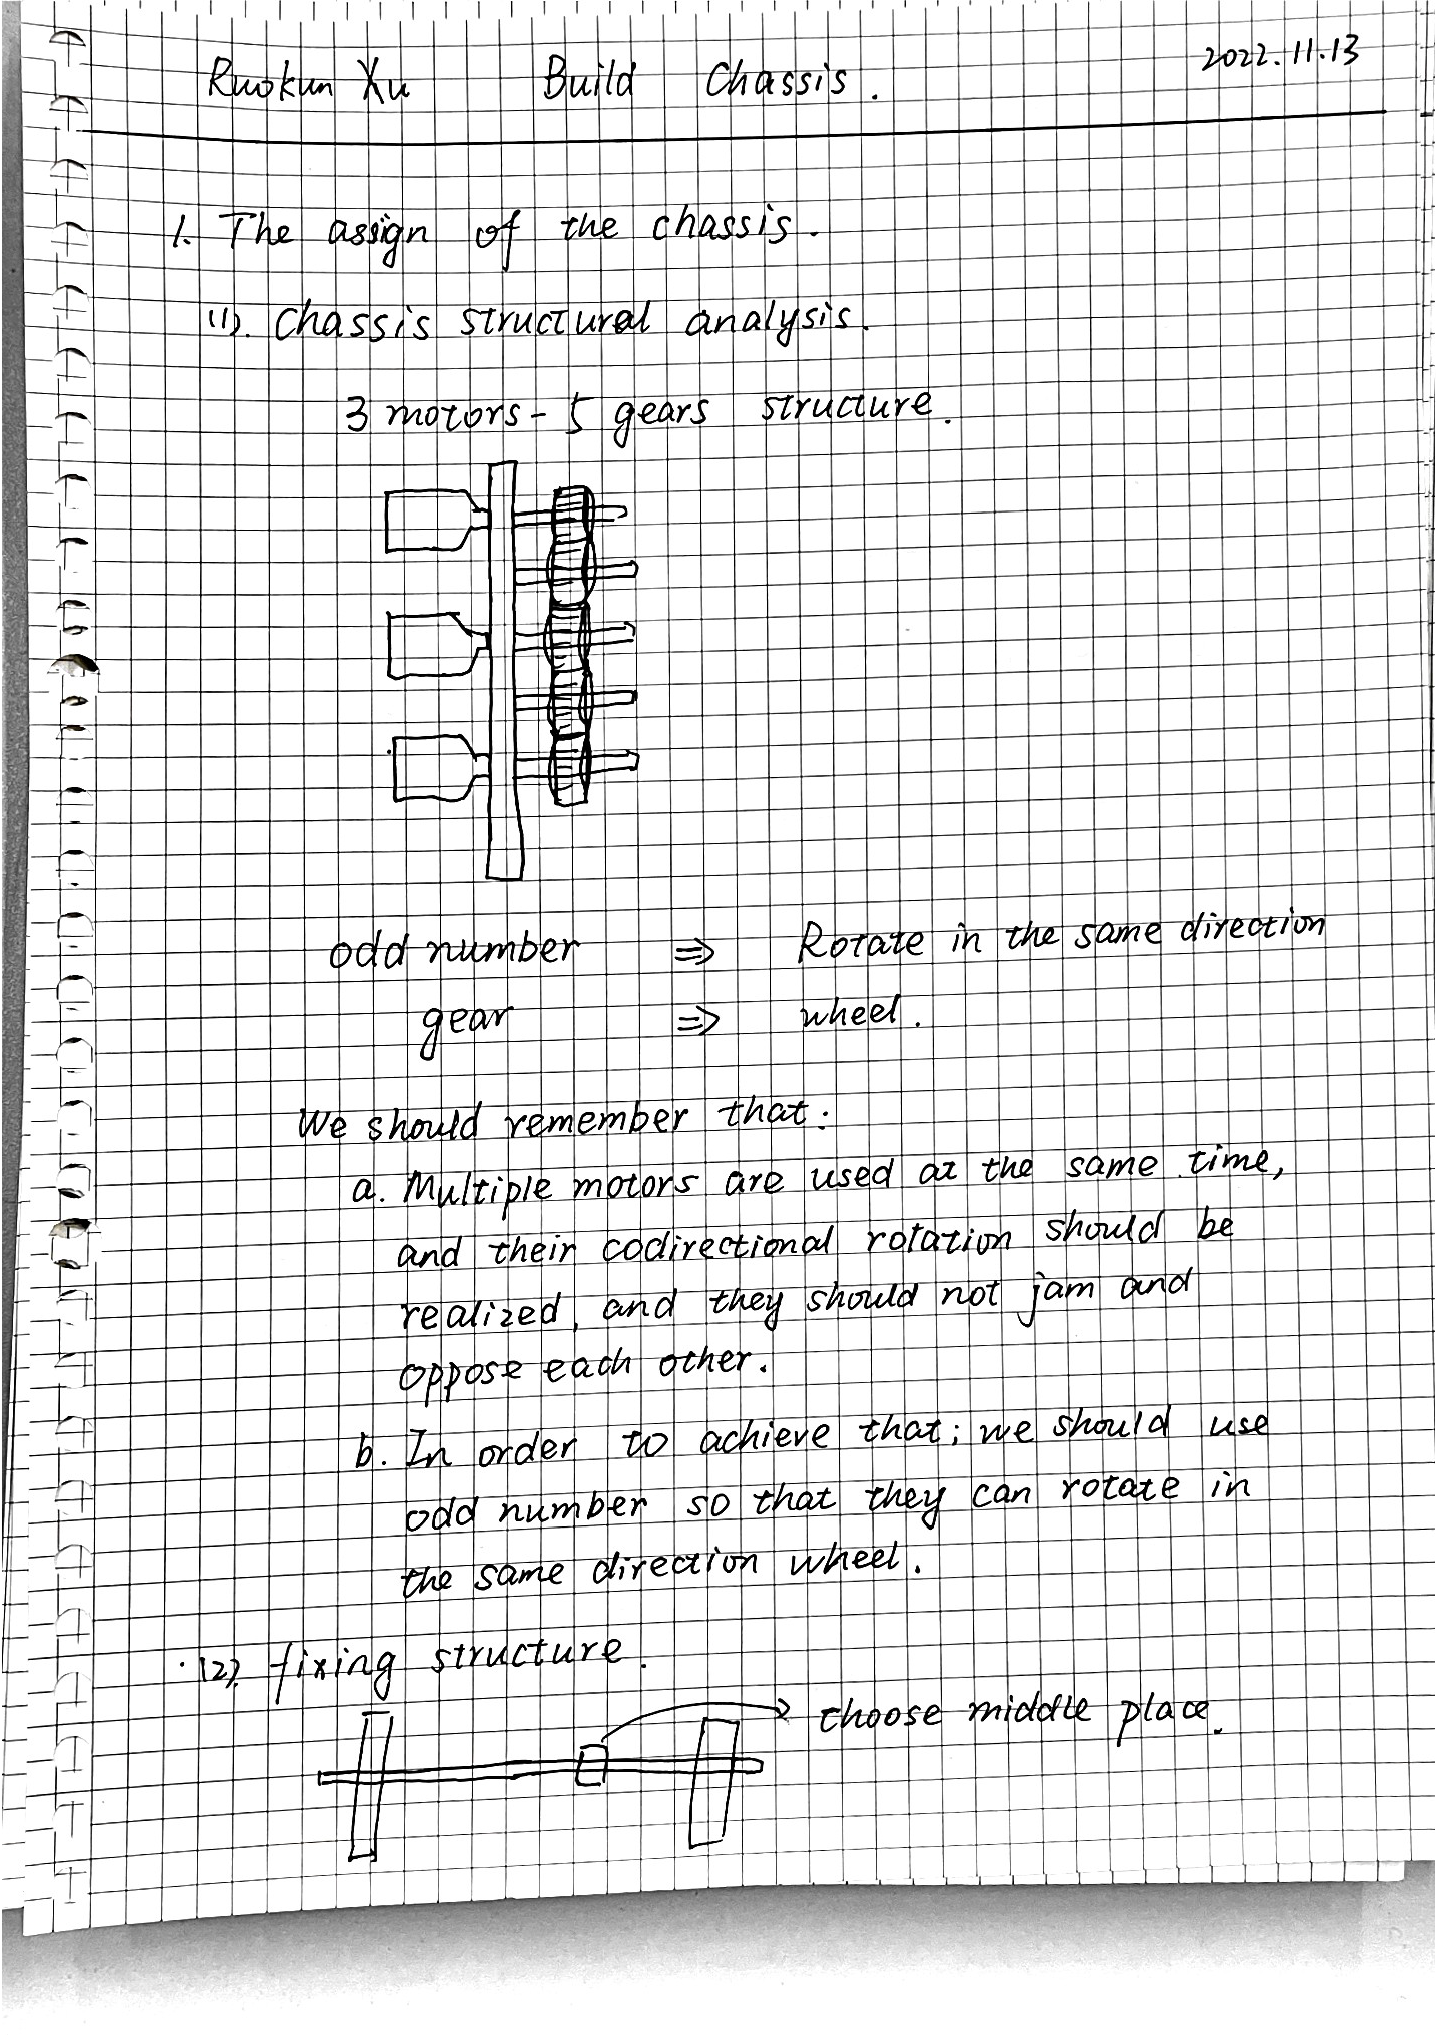 Ruokun Xu Build Chassis. 2022.11.13
1. The assign of the chassis.
(1). Chassis structural analysis.
3 motors - 5 gears structure.
odd number ⇒ Rotate in the same direction
gear ⇒ wheel.
We should remember that:
a. Multiple motors are used at the same time,
and their codirectional rotation should be
realized, and they should not jam and
oppose each other.
b. In order to achieve that; we should use
odd number so that they can rotate in
the same direction wheel.
(2). fixing structure.
choose middle place.